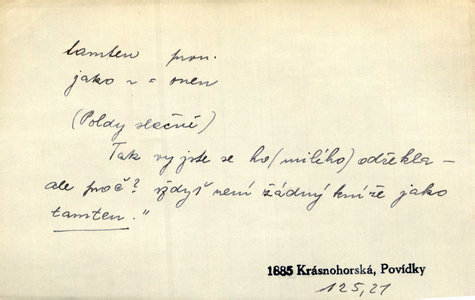 tamten pron.
jako ~ = onen
(Poldy slečně)
Tak vy jste se ho (milího) odřekla –
ale proč? vždyť není žádný kníže jako
tamten."
1885 Krásnohorská, Povídky
125,21